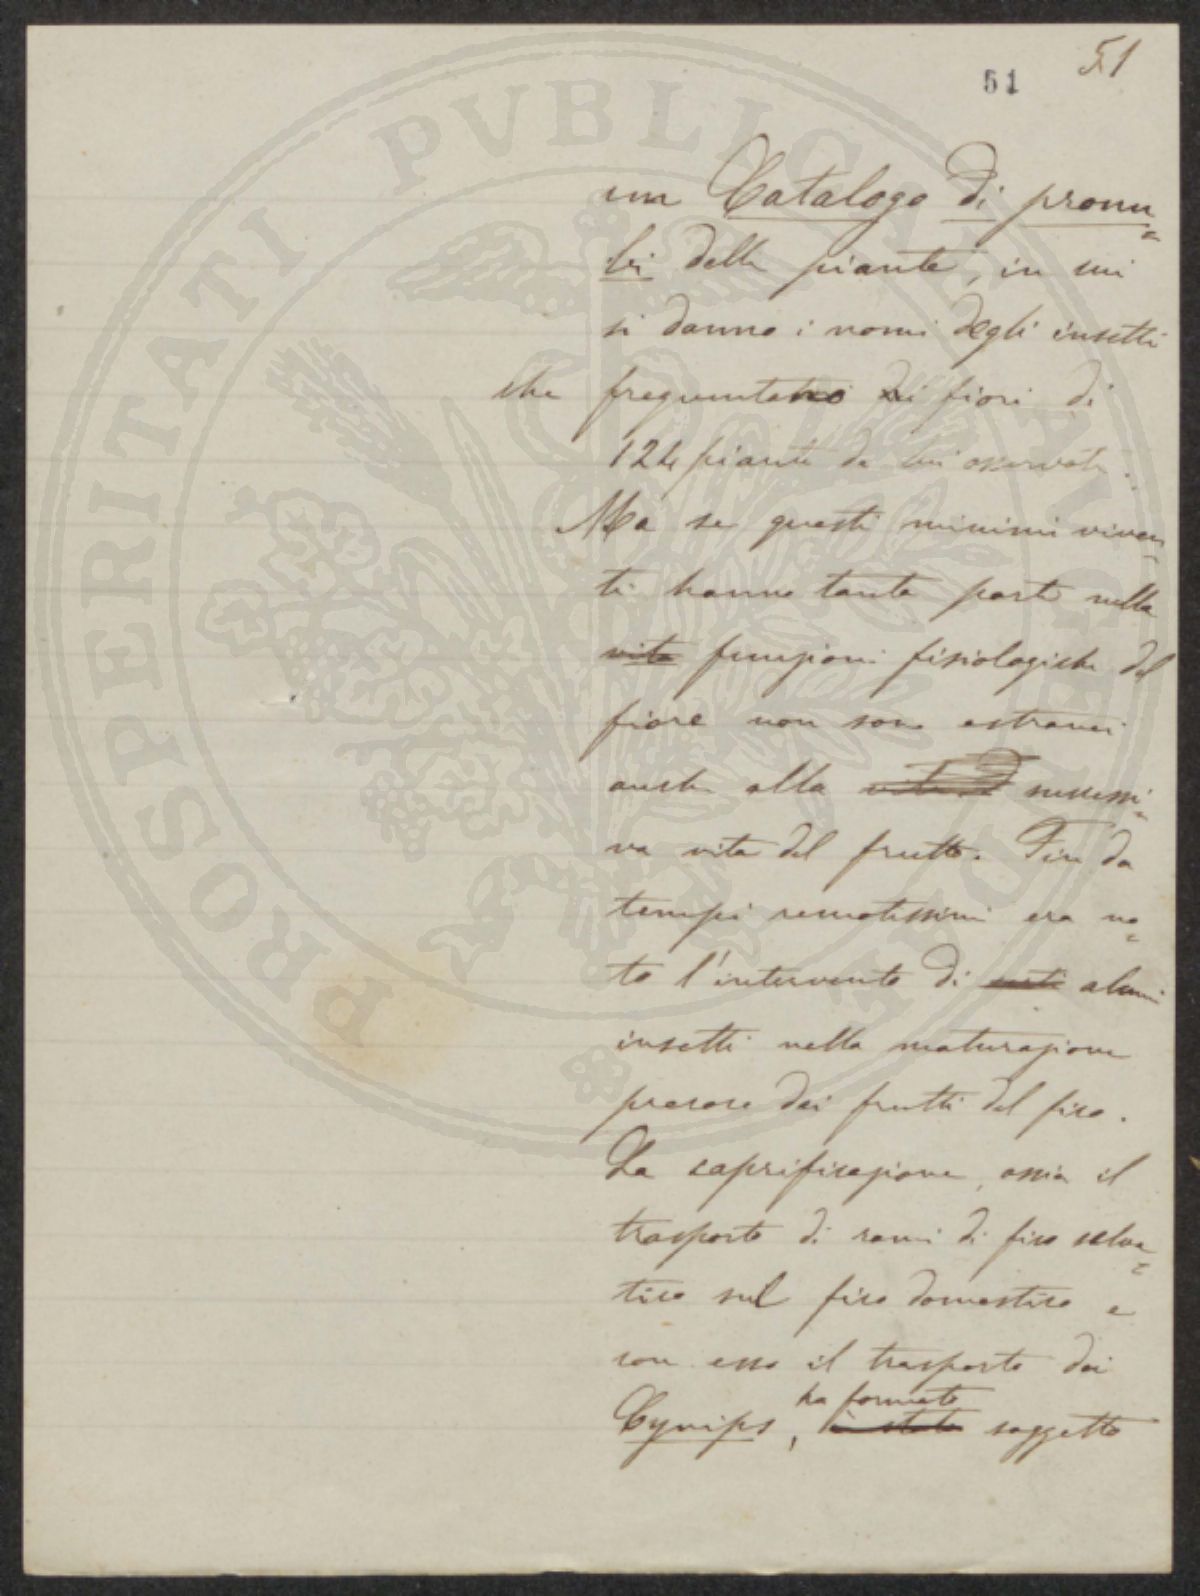 51
51
un Catalogo di pronu=
bi delle piante, in cui
si danno i nomi degli insetti
che frequentano i fiori di
124 piante da lui osservate.
Ma se questi minimi viven=
ti hanno tanta parte nella
vita funzioni fisiologiche del
fiore non sono estranei
anche alla successi=
va vita del frutto. Fin da
tempi remotissimi era no=
to l'intervento di certi alcuni
insetti nella maturazione
precoce dei frutti del fico.
La caprificazione, ossia il
trasporto di rami di fico selva=
tico sul fico domestico e
con esso il trasporto dei
ha formato
Cynips, è stato soggetto
PROSPERITATI PVBLICAE AVGENDAE